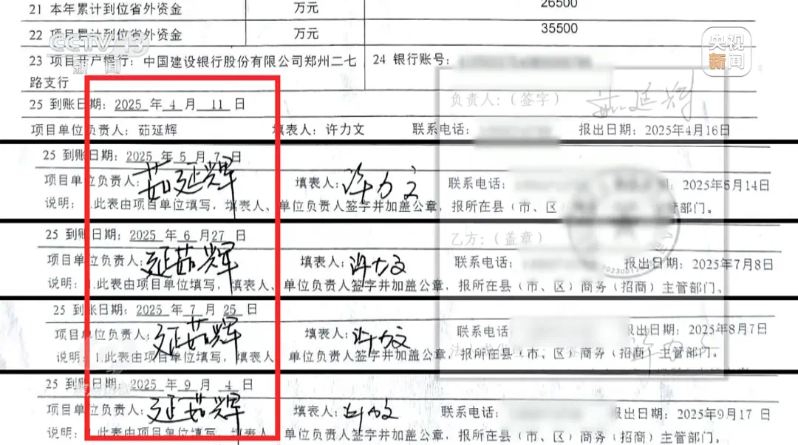 21 本年累计到位省外资金 万元 26500
22 项目累计到位省外资金 万元 35500
CCTV 13 新闻
央视新闻
23 项目开户银行：中国建设银行股份有限公司郑州二七路支行 24 银行账号：
25 到账日期：2025 年 4 月 11 日
负责人：（签字） 茹延辉
项目单位负责人：茹延辉 填表人：许力文 联系电话： 报出日期：2025年4月16日
25 到账日期：2025 年 5 月 7 日
项目单位负责人：茹延辉 填表人：许力文 联系电话： 报出日期：2025年5月14日
说明：1.此表由项目单位填写，填表人、单位负责人签字并加盖公章，报所在县（市、区）商务（招商）主管部门。
25 到账日期：2025 年 6 月 27 日
乙方：（盖章）
项目单位负责人：延茹辉 填表人：许力文 联系电话： 报出日期：2025年7月8日
说明：1.此表由项目单位填写，填表人、单位负责人签字并加盖公章，报所在县（市、区）商务（招商）主管部门。
25 到账日期：2025 年 7 月 25 日
项目单位负责人：延茹辉 填表人：许力文 联系电话： 报出日期：2025年8月7日
说明：1.此表由项目单位填写，填表人、单位负责人签字并加盖公章，报所在县（市、区）商务（招商）主管部门。
25 到账日期：2025 年 9 月 4 日
项目单位负责人：延茹辉 填表人：许力文 联系电话： 报出日期：2025年9月17日
说明：1.此表由项目单位填写，填表人、单位负责人签字并加盖公章，报所在县（市、区）商务（招商）主管部门。